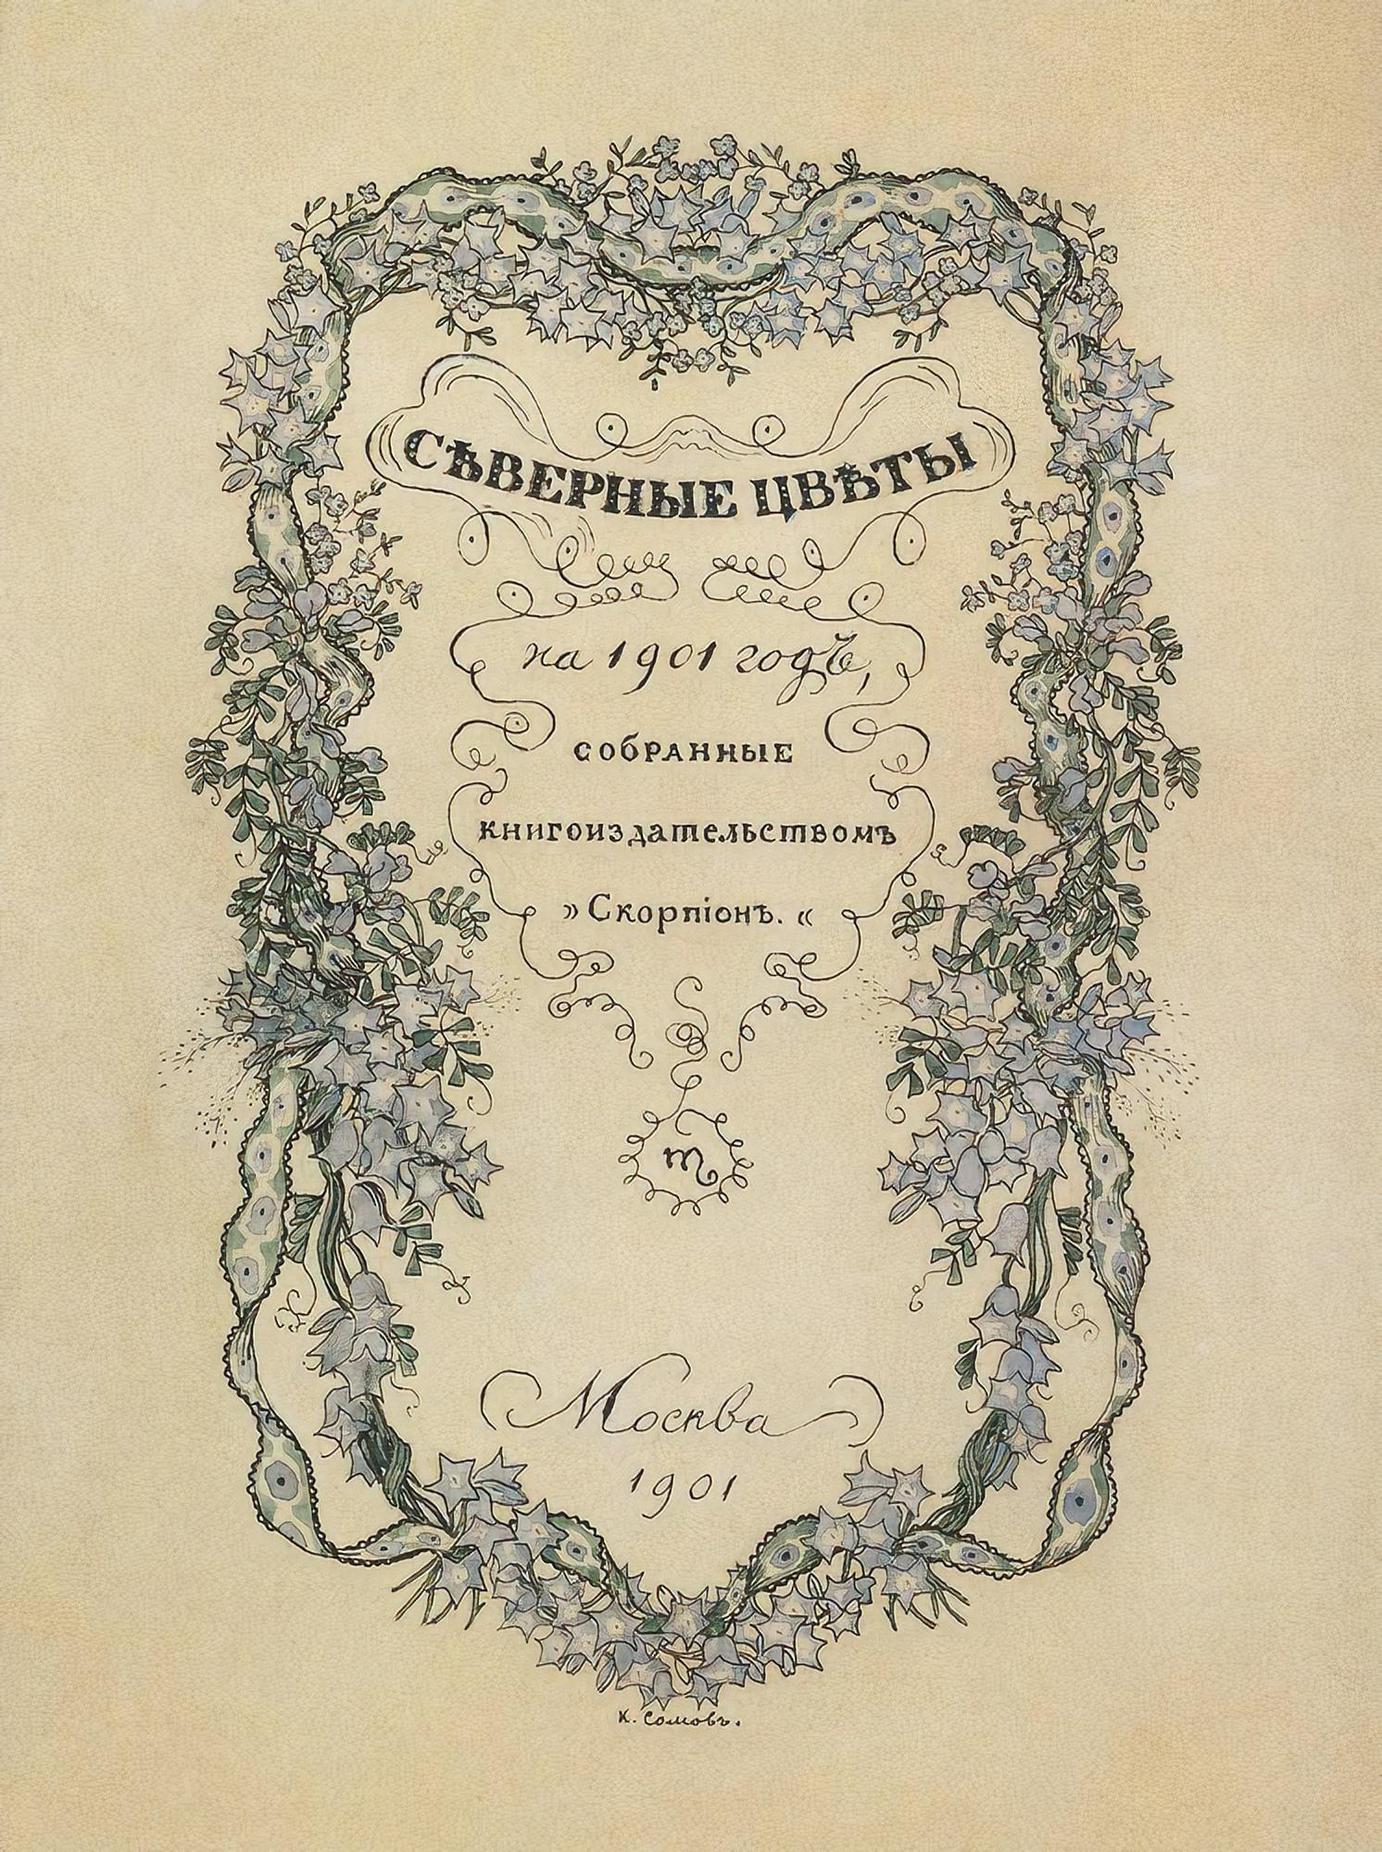 СѢВЕРНЫЕ ЦВѢТЫ
на 1901 годъ,
СОБРАННЫЕ
книгоиздательствомъ
»Скорпіонъ.«
m
Москва
1901
К. Сомовъ.